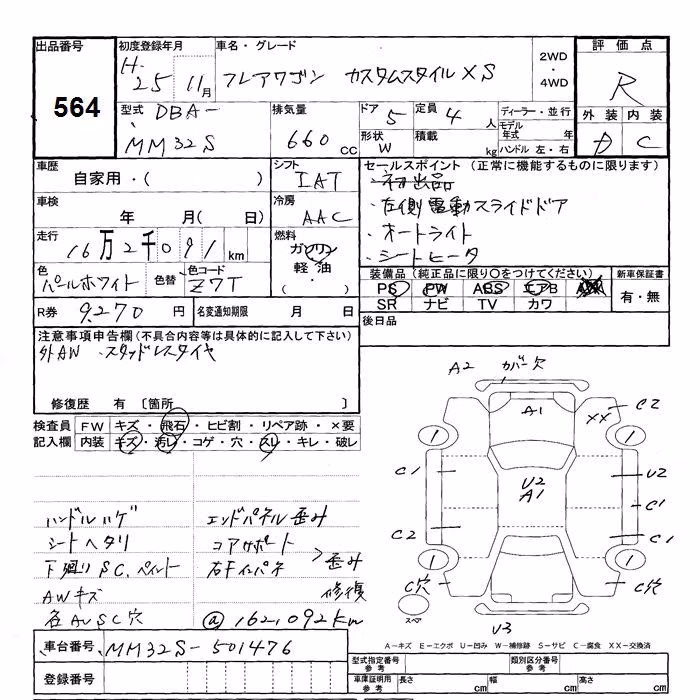 出品番号
564
初度登録年月
H. 25年 11月
車名・グレード
フレアワゴン カスタムスタイル XS
2WD
・
4WD
評価点
R
外装 内装
D C
型式 DBA-
MM32S
排気量
660 cc
ドア 5
定員 4 人
形状 W
積載 kg
ディーラー・並行
モデル年式 年
ハンドル 左・右
車歴
自家用・( )
シフト
IAT
セールスポイント (正常に機能するものに限ります)
・初出品
・左側電動スライドドア
・オートライト
・シートヒータ
車検
年 月( 日)
冷房
AAC
走行
16万2千091 km
燃料
ガソリン
軽油
・( )
色
パールホワイト
色替
色コード
Z7T
装備品(純正品に限り○をつけてください)
PS PW ABS エアB
SR ナビ TV カワ
新車保証書
有・無
R券 9,270 円
名変通知期限 月 日
後日品
注意事項申告欄(不具合内容等は具体的に記入して下さい)
外AW スタッドレスタイヤ
修復歴 有 〔箇所 〕
検査員記入欄
FW キズ・飛石・ヒビ割・リペア跡・×要
内装 キズ・汚レ・コゲ・穴・スレ・キレ・破レ
ハンドルハゲ
シートヘタリ
下廻りSC.ペイント
AWキズ
各AWSC穴
エンドパネル歪み
コアサポート
右Fインパネ
>歪み
修復
@162,092km
A2 カバー穴
A1
XX
C2
1
1
C1
U2
A1
U2
C1
C2
C1
1
1
C穴
C穴
スペア
U3
A-キズ E-エクボ U-凹み W-補修跡 S-サビ C-腐食 XX-交換済
車台番号 MM32S-501476
登録番号
型式指定番号 参考
類別区分番号 参考
車庫証明用 参考
長さ cm
幅 cm
高さ cm